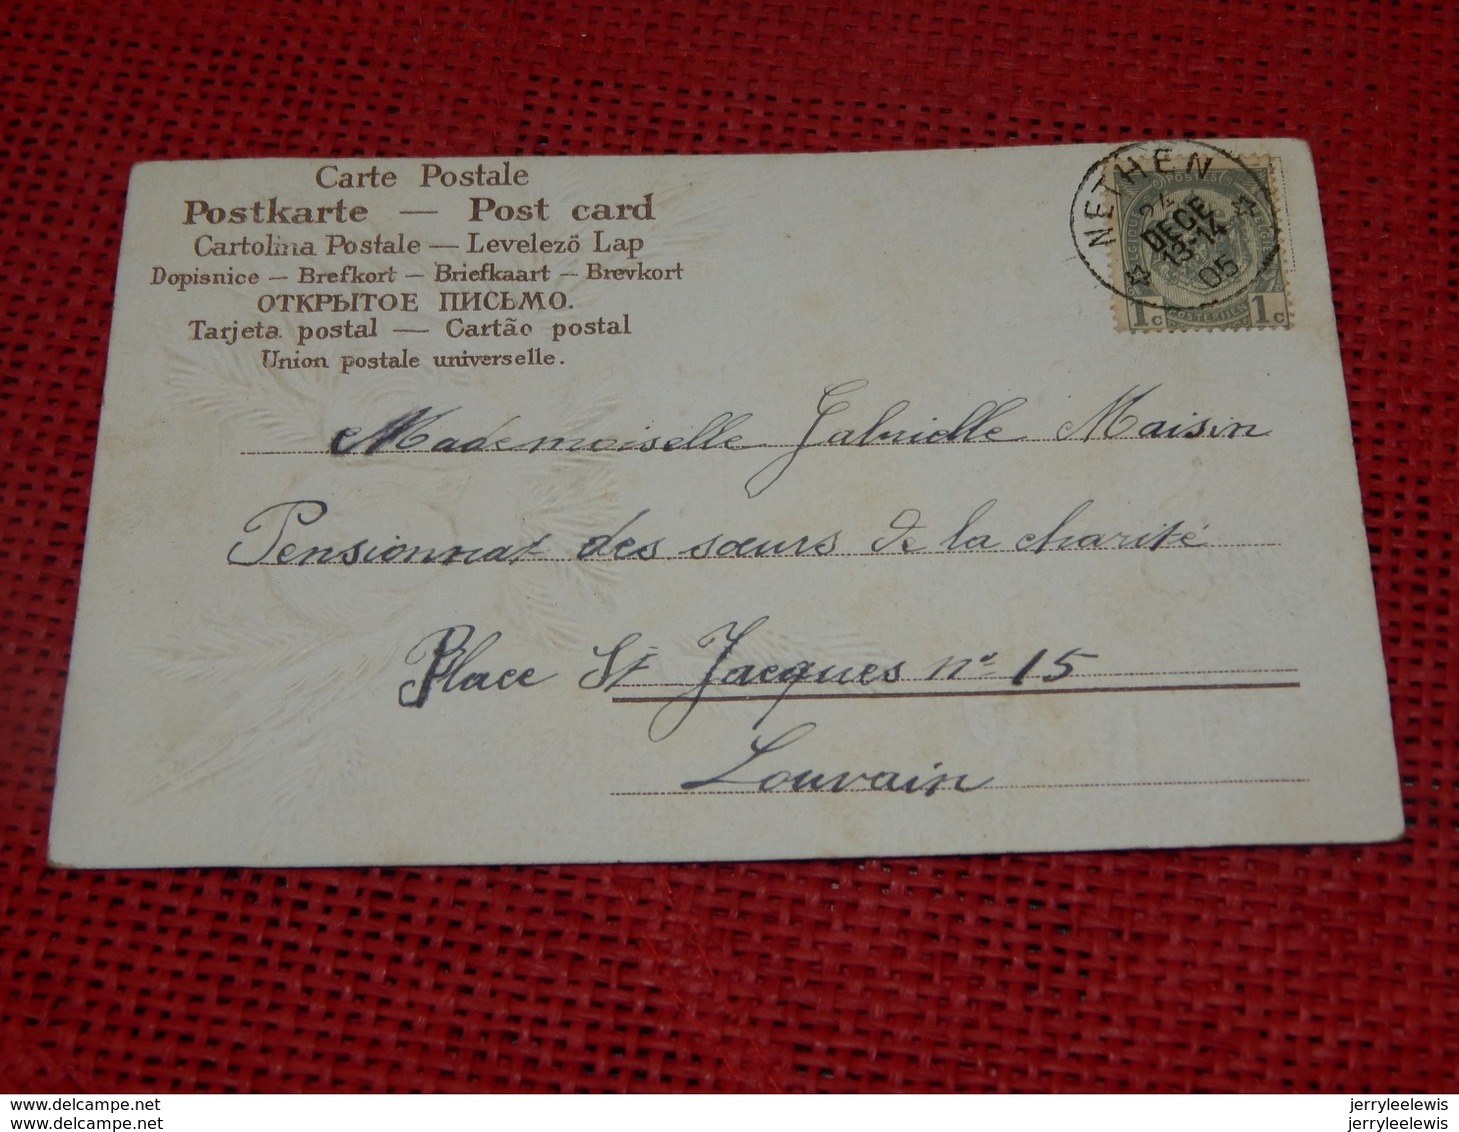 Carte Postale
Postkarte — Post card
Cartolina Postale — Levelezö Lap
Dopisnice — Brefkort — Briefkaart — Brevkort
ОТКРЫТОЕ ПИСЬМО.
Tarjeta postal — Cartão postal
Union postale universelle.
NETHEN
24
DECE
13-14
05
POSTES
1c 1c
Mademoiselle Gabrielle Maisin
Pensionnat des sœurs de la charité
Place St Jacques n° 15
Louvain
www.delcampe.net jerryleelewis
www.delcampe.net jerryleelewis